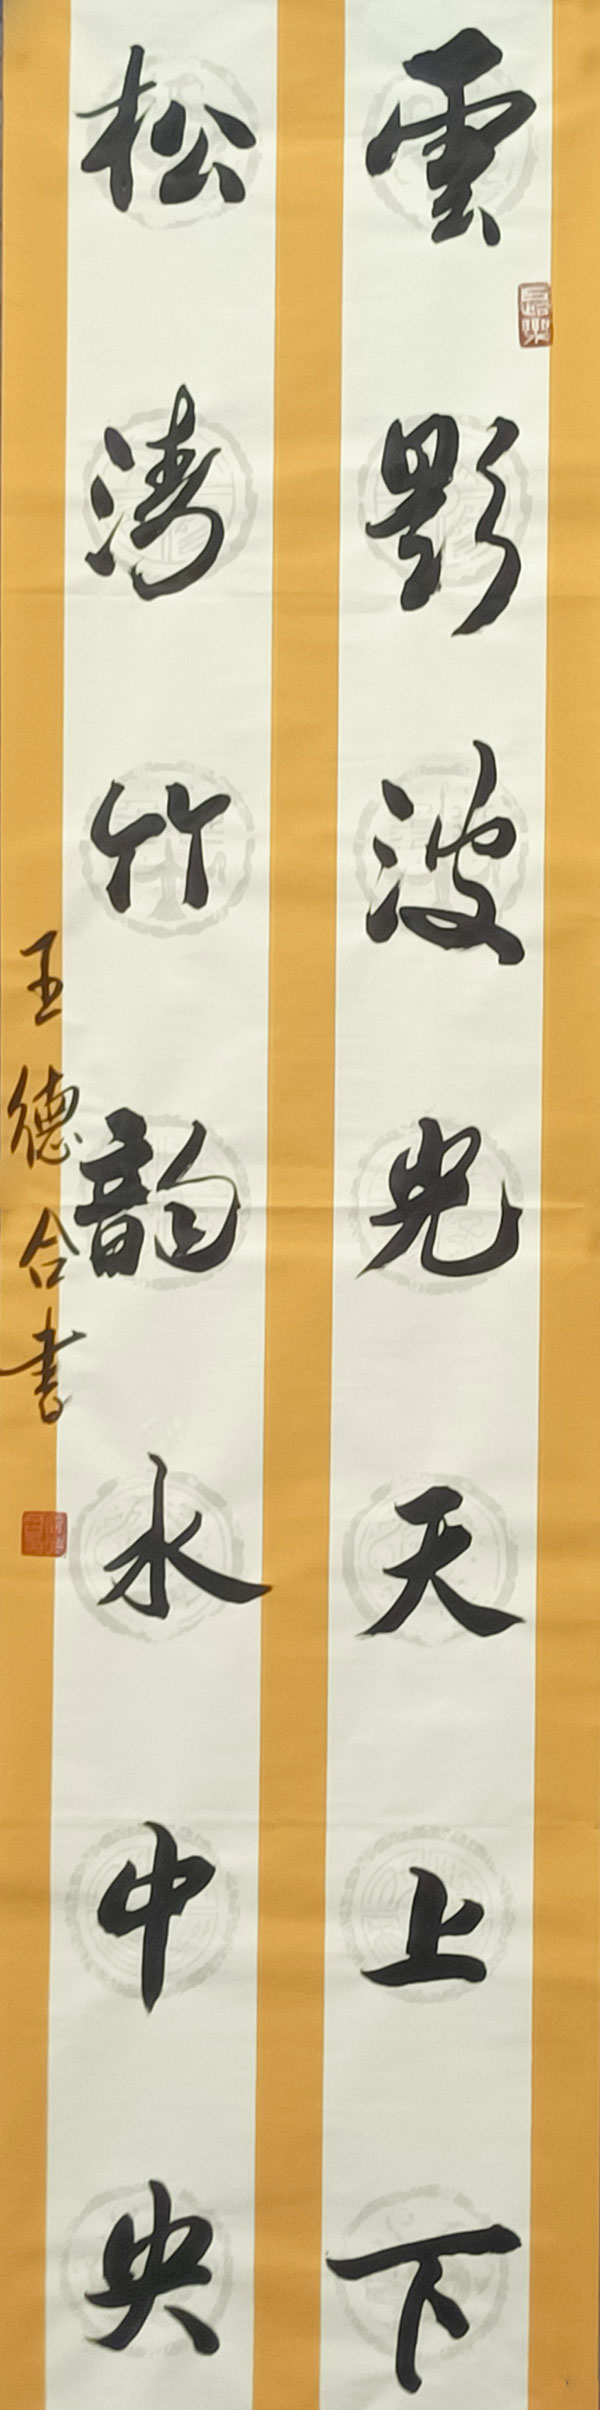 雲影波光天上下
松濤竹韵水中央
王德合書